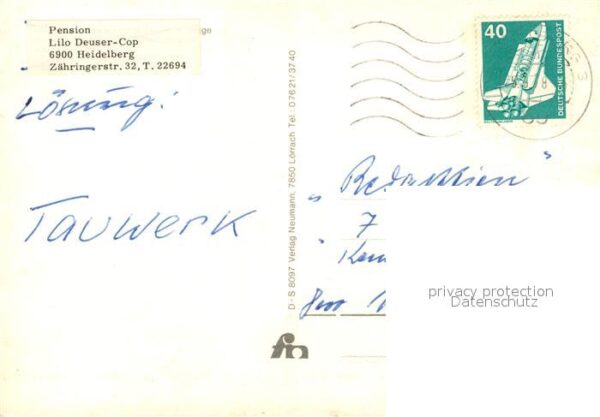 Pension
Lilo Deuser-Cop
6900 Heidelberg
Zähringerstr. 32, T. 22694
Lösung:
Tauwerk
D - S 8097 Verlag Neumann, 7850 Lörrach Tel.: 0 76 21/37 40
40
DEUTSCHE BUNDESPOST
"Redaktion"
7
privacy protection
Datenschutz
fn